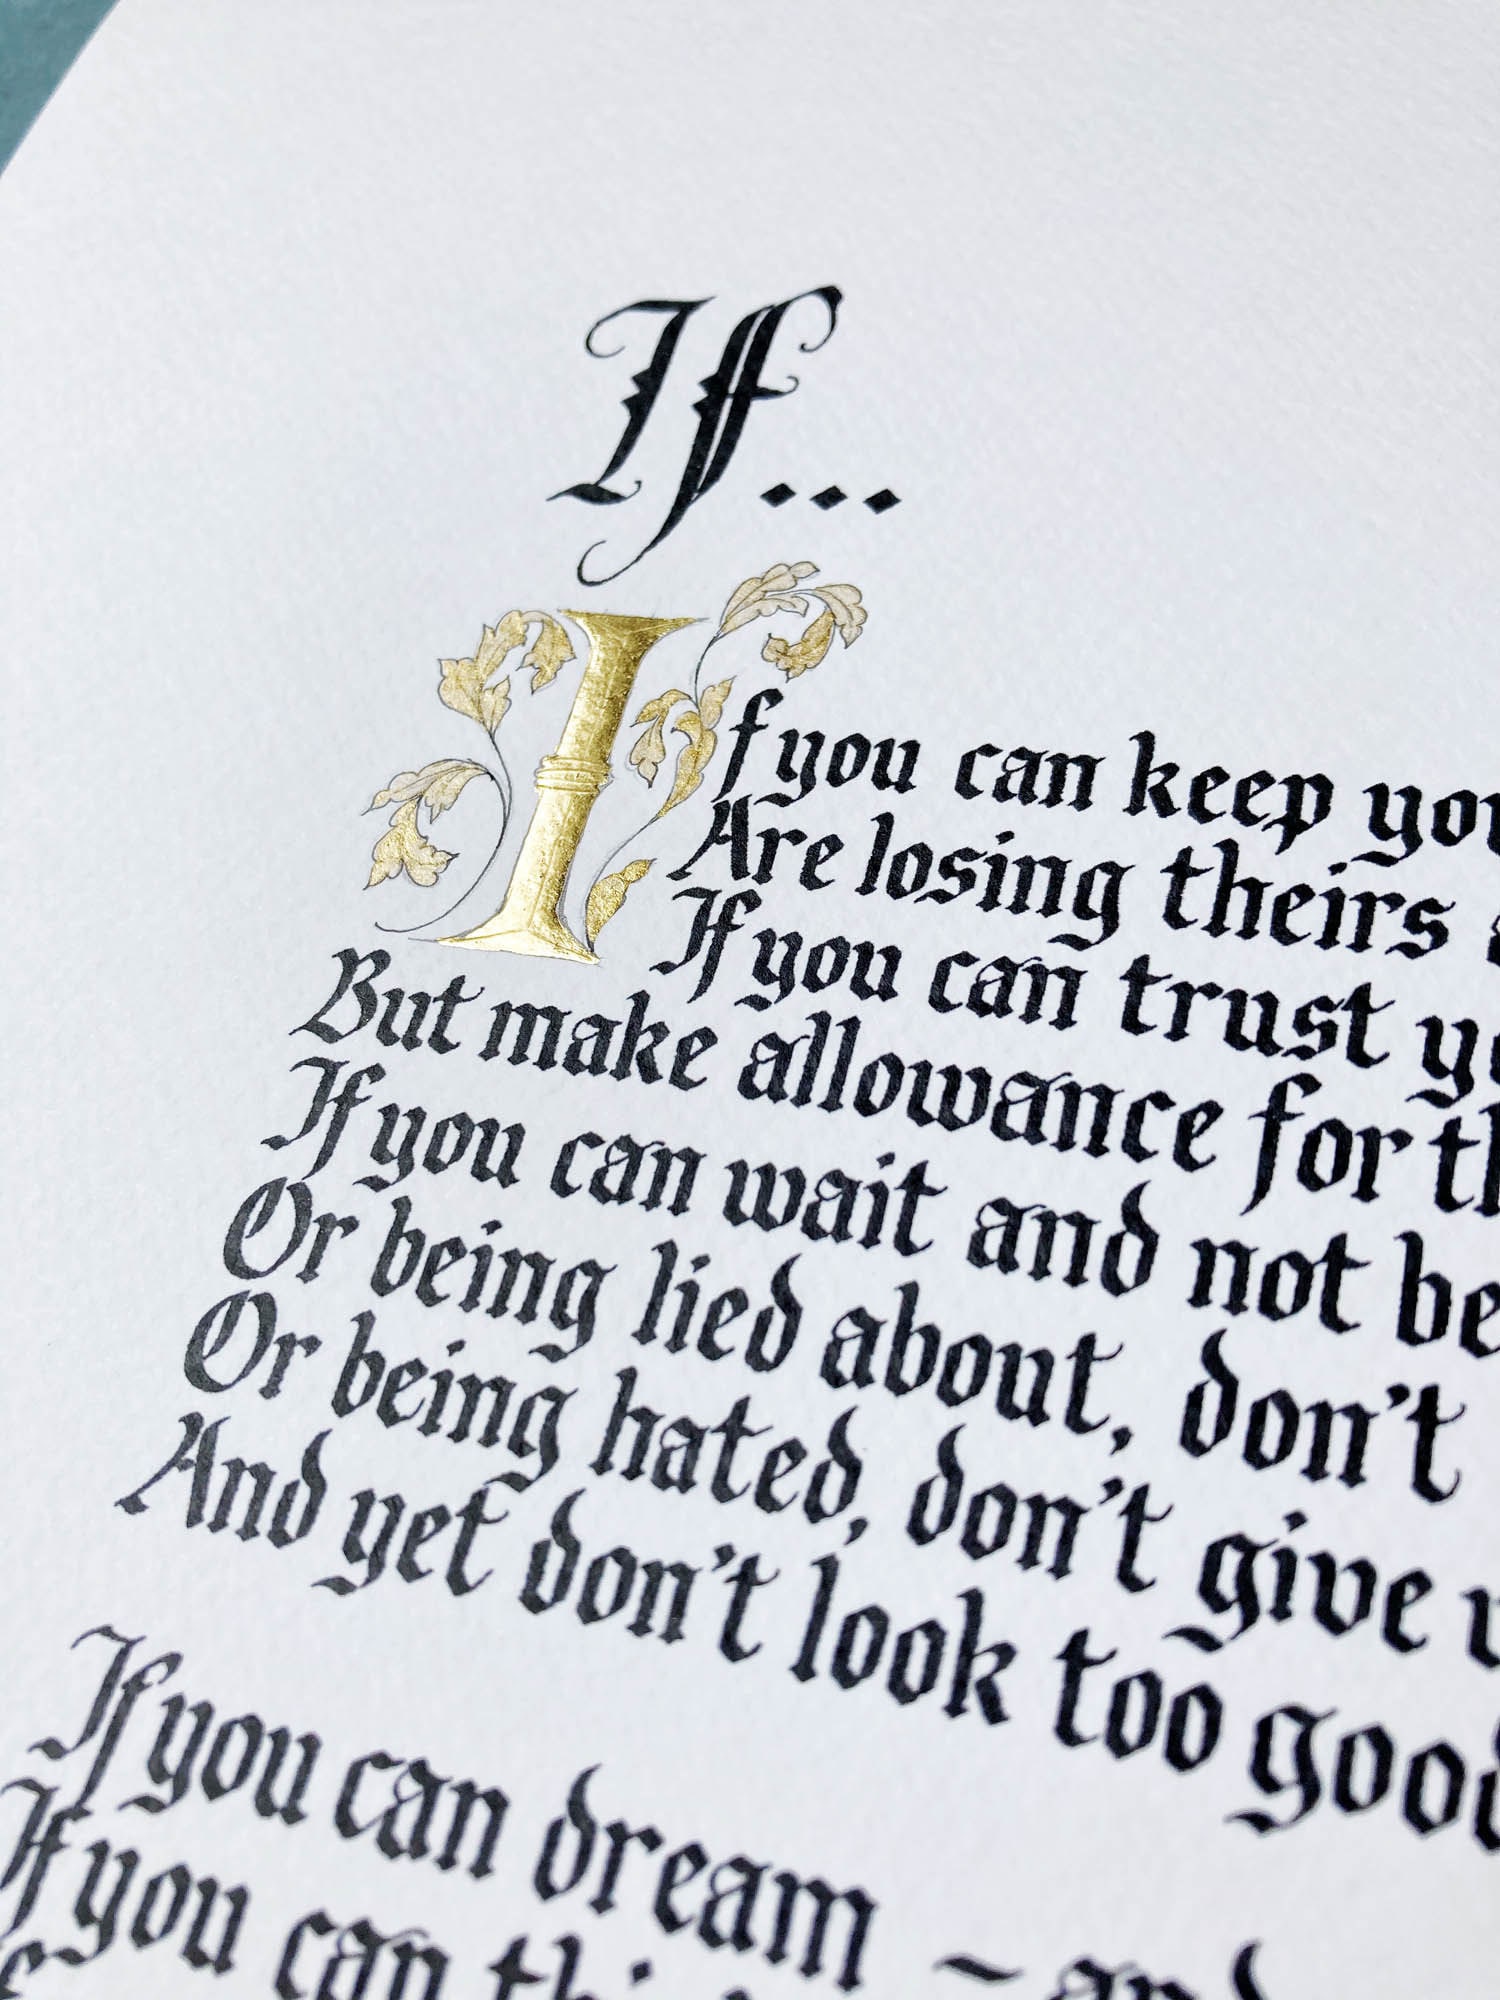 If...
If you can keep
Are losing theirs
If you can trust
But make allowance for
If you can wait and not
Or being lied about, don't
Or being hated, don't give
And yet don't look too
If you can dream – and
If you can